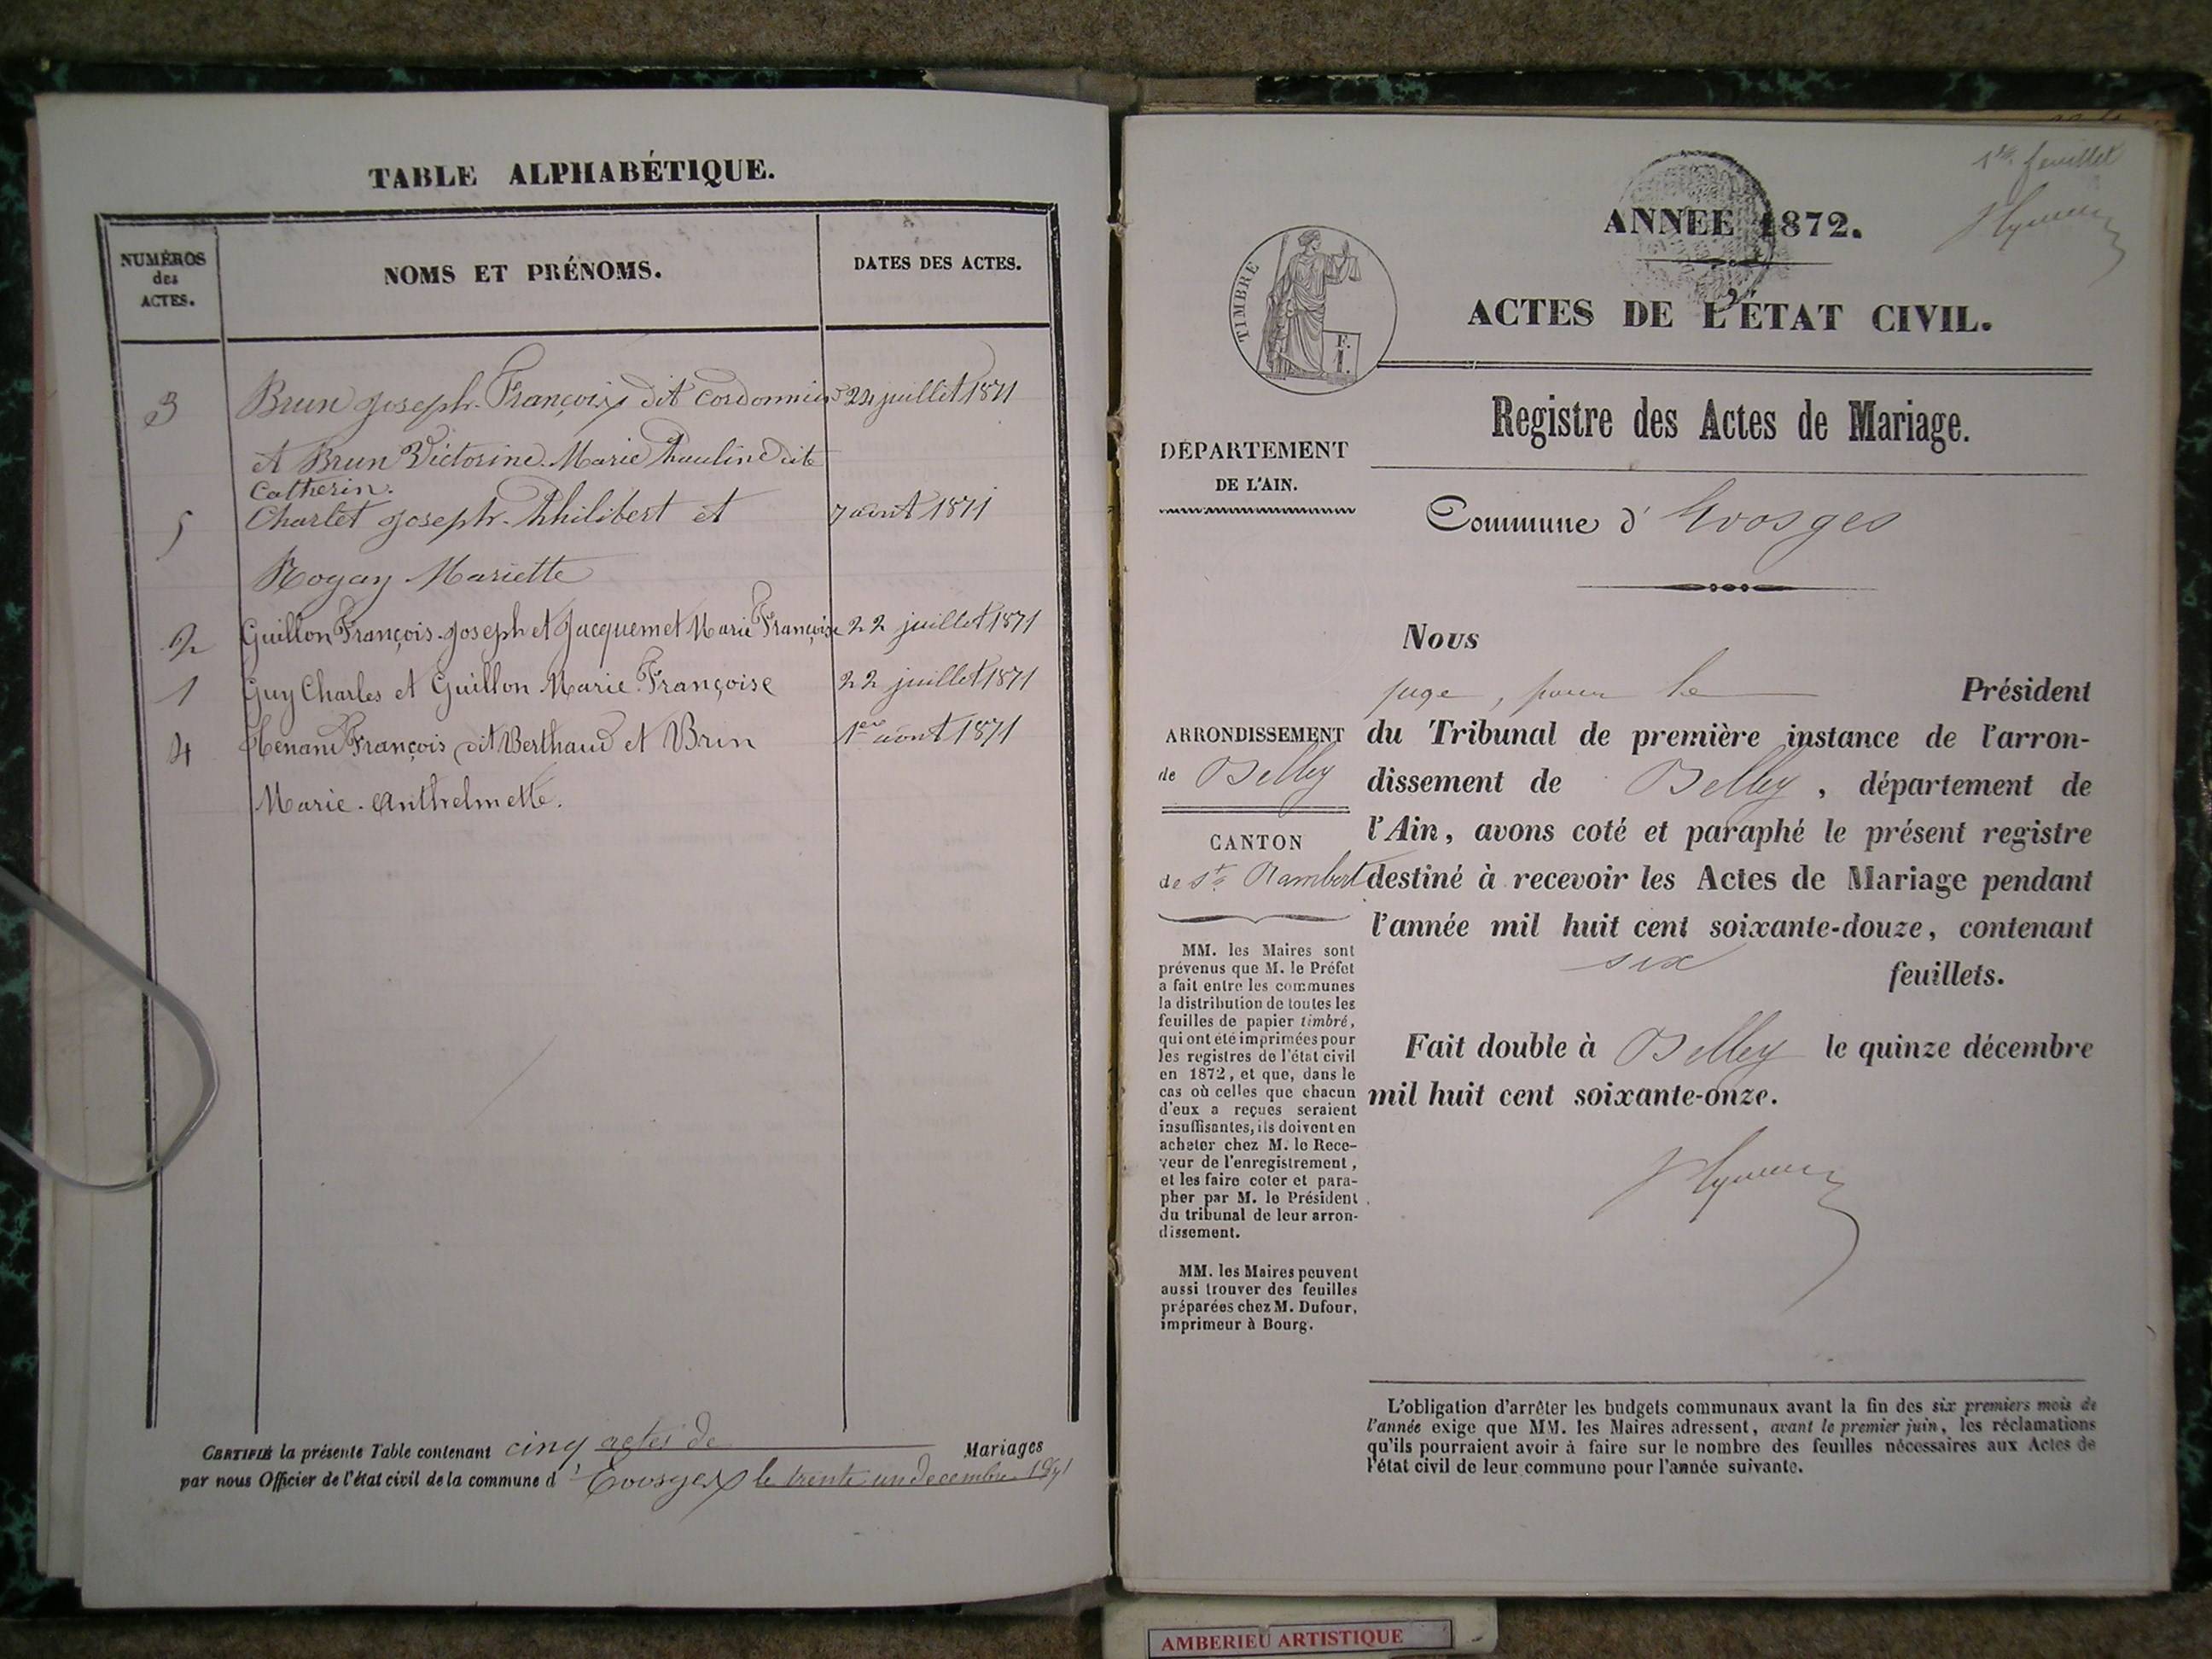 TABLE ALPHABÉTIQUE.
NUMÉROS
des
ACTES.
NOMS ET PRÉNOMS.
DATES DES ACTES.
3 Brun Joseph-François dit Cordonnier 22 juillet 1871
et Brun Victorine Marie Pauline dite
Catherin.
5 Charlet Joseph-Philibert et 7 août 1871
Rogay Mariette
2 Guillon François-Joseph et Jacquemet Marie Françoise 22 juillet 1871
1 Guy Charles et Guillon Marie Françoise 22 juillet 1871
4 François dit Berthaud et Brun 1er août 1871
Marie-Anthelmette.
CERTIFIÉ la présente Table contenant cinq actes de Mariages
par nous Officier de l'état civil de la commune d'Evosges le trente un decembre 1871
1er feuillet
ANNÉE 1872.
TIMBRE
F.
1.
ACTES DE L'ÉTAT CIVIL.
Registre des Actes de Mariage.
DÉPARTEMENT
DE L'AIN.
Commune d'Evosges
Nous
juge, pour le Président
du Tribunal de première instance de l'arron-
dissement de Belley, département de
l'Ain, avons coté et paraphé le présent registre
destiné à recevoir les Actes de Mariage pendant
l'année mil huit cent soixante-douze, contenant
six feuillets.
Fait double à Belley le quinze décembre
mil huit cent soixante-onze.
ARRONDISSEMENT
de Belley
CANTON
de St Rambert
MM. les Maires sont
prévenus que M. le Préfet
a fait entre les communes
la distribution de toutes les
feuilles de papier timbré,
qui ont été imprimées pour
les registres de l'état civil
en 1872, et que, dans le
cas où celles que chacun
d'eux a reçues seraient
insuffisantes, ils doivent en
acheter chez M. le Rece-
veur de l'enregistrement,
et les faire coter et para-
pher par M. le Président
du tribunal de leur arron-
dissement.
MM. les Maires peuvent
aussi trouver des feuilles
préparées chez M. Dufour,
imprimeur à Bourg.
L'obligation d'arrêter les budgets communaux avant la fin des six premiers mois de
l'année exige que MM. les Maires adressent, avant le premier juin, les réclamations
qu'ils pourraient avoir à faire sur le nombre des feuilles nécessaires aux Actes de
l'état civil de leur commune pour l'année suivante.
AMBERIEU ARTISTIQUE